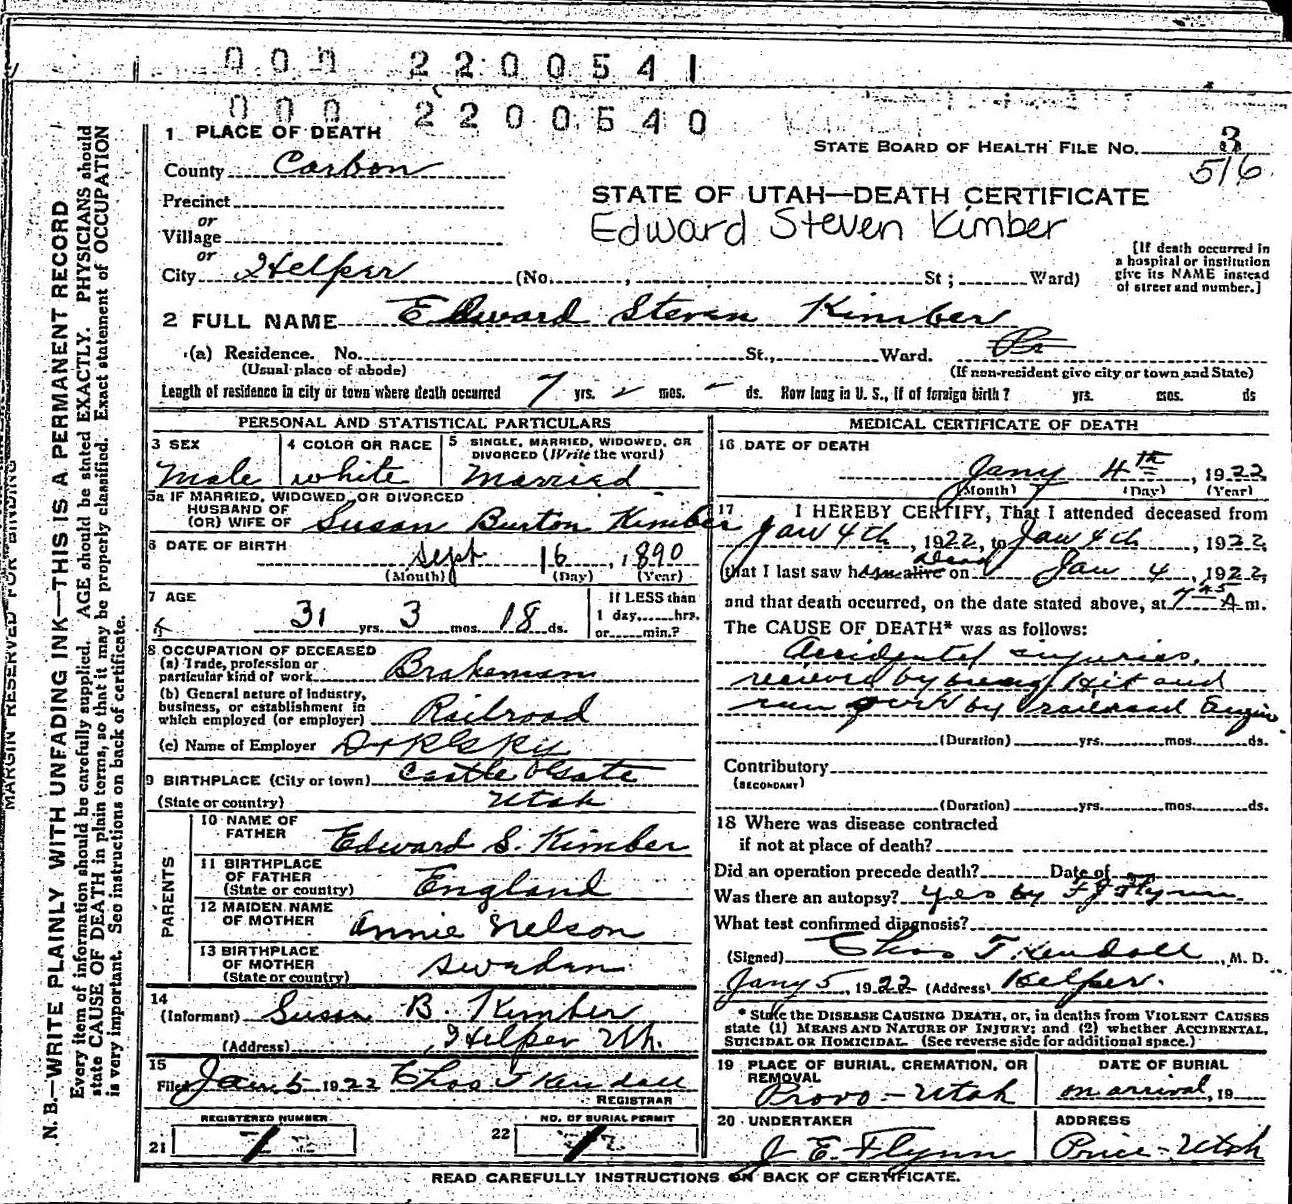 000 2200541
000 2200540
STATE BOARD OF HEALTH FILE NO. 3
516
1 PLACE OF DEATH
County Carbon
Precinct
or
Village
or
City Helper (No. , St ; Ward)
STATE OF UTAH—DEATH CERTIFICATE
Edward Steven Kimber
[If death occurred in
a hospital or institution
give its NAME instead
of street and number.]
2 FULL NAME Edward Steven Kimber
(a) Residence. No. St., Ward.
(Usual place of abode) (If non-resident give city or town and State)
Length of residence in city or town where death occurred 7 yrs. 2 mos. - ds. How long in U. S., if of foreign birth? yrs. mos. ds
PERSONAL AND STATISTICAL PARTICULARS
3 SEX
Male
4 COLOR OR RACE
white
5 SINGLE, MARRIED, WIDOWED, OR
DIVORCED (Write the word)
Married
5a IF MARRIED, WIDOWED, OR DIVORCED
HUSBAND OF
(OR) WIFE OF Susan Burton Kimber
6 DATE OF BIRTH
Sept 16, 1890
(Month) (Day) (Year)
7 AGE
31 yrs. 3 mos. 18 ds.
If LESS than
1 day, hrs.
or min.?
8 OCCUPATION OF DECEASED
(a) Trade, profession or
particular kind of work Brakeman
(b) General nature of industry,
business, or establishment in
which employed (or employer) Railroad
(c) Name of Employer D & R G Ry
9 BIRTHPLACE (City or town) Castle Gate
(State or country) Utah
PARENTS
10 NAME OF
FATHER Edward S. Kimber
11 BIRTHPLACE
OF FATHER
(State or country) England
12 MAIDEN NAME
OF MOTHER Annie Nelson
13 BIRTHPLACE
OF MOTHER
(State or country) Swedan
14
(Informant) Susan B. Kimber
(Address) Helper Uth.
15
Filed Jan 5 1922 Thos T Kendall
REGISTRAR
REGISTERED NUMBER
21
NO. OF BURIAL PERMIT
22
MEDICAL CERTIFICATE OF DEATH
16 DATE OF DEATH
Jany 4th, 1922
(Month) (Day) (Year)
17 I HEREBY CERTIFY, That I attended deceased from
Jan 4th, 1922, to Jan 4th, 1922,
that I last saw him alive dead on Jan 4, 1922,
and that death occurred, on the date stated above, at 7 45 A m.
The CAUSE OF DEATH* was as follows:
Accidental injuries.
recieved by being Hit and
run over by railroad Engine
(Duration) yrs. mos. ds.
Contributory
(SECONDARY)
(Duration) yrs. mos. ds.
18 Where was disease contracted
if not at place of death?
Did an operation precede death? Date of
Was there an autopsy? yes by F J Flynn
What test confirmed diagnosis?
(Signed) Thos T Kendall, M. D.
Jany 5, 1922 (Address) Helper.
* State the DISEASE CAUSING DEATH, or, in deaths from VIOLENT CAUSES
state (1) MEANS AND NATURE OF INJURY; and (2) whether ACCIDENTAL,
SUICIDAL OR HOMICIDAL. (See reverse side for additional space.)
19 PLACE OF BURIAL, CREMATION, OR
REMOVAL
Provo - Utah
DATE OF BURIAL
on arrival, 19
20 UNDERTAKER
J E. Flynn
ADDRESS
Price - Utah
READ CAREFULLY INSTRUCTIONS ON BACK OF CERTIFICATE.
MARGIN RESERVED FOR BINDING
N. B.—WRITE PLAINLY WITH UNFADING INK—THIS IS A PERMANENT RECORD
Every item of information should be carefully supplied. AGE should be stated EXACTLY. PHYSICIANS should
state CAUSE OF DEATH in plain terms, so that it may be properly classified. Exact statement of OCCUPATION
is very important. See instructions on back of certificate.